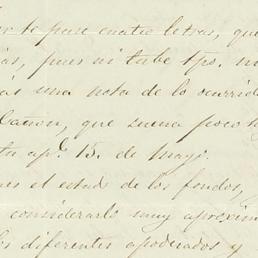 te puse cuatro letras, que
pues ni tube tpo. n
una nota de lo ocurrid
que suena poco
15. de mayo.
el estado de los fondos,
considerarlo muy aproxim
diferentes apoderados y